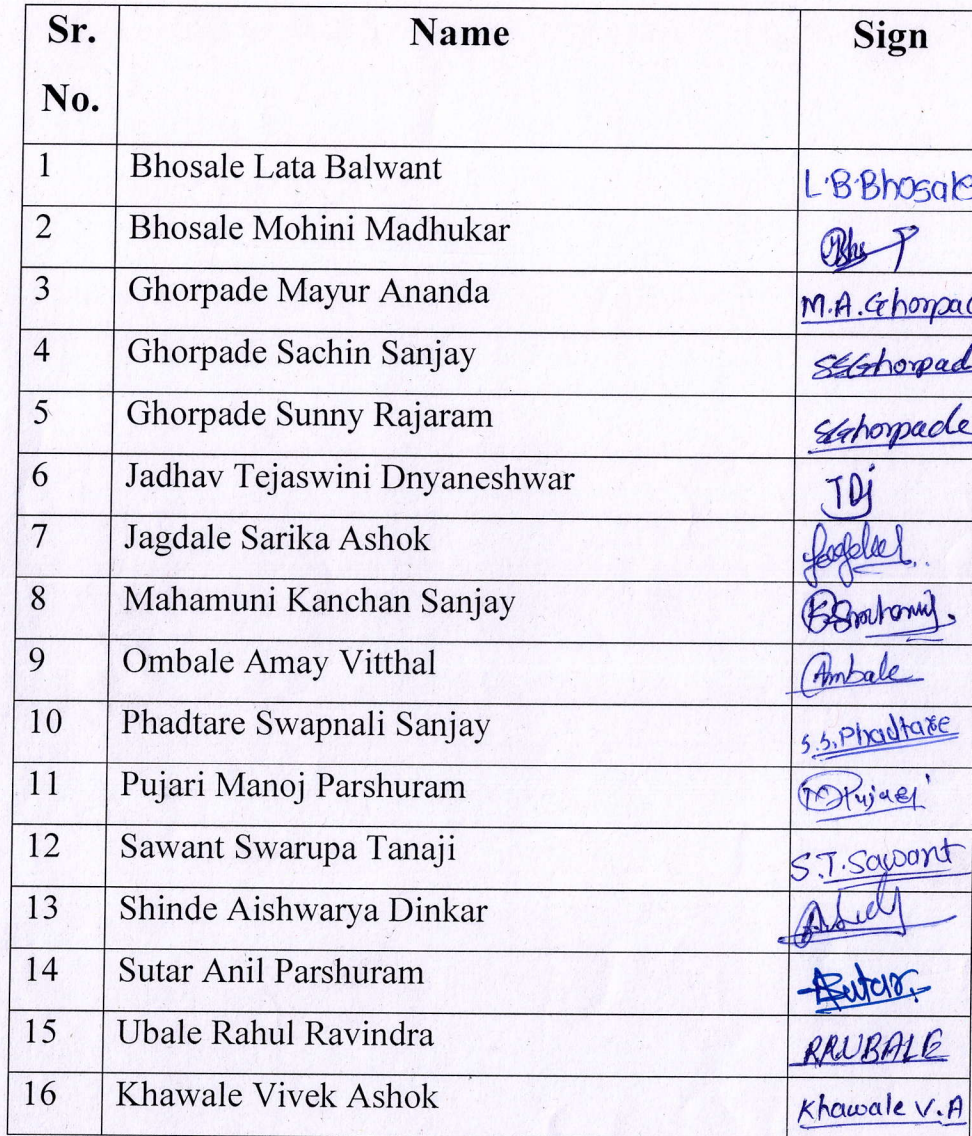 Sr. No. Name Sign
1 Bhosale Lata Balwant L.B.Bhosale
2 Bhosale Mohini Madhukar
3 Ghorpade Mayur Ananda M.A.Ghorpad
4 Ghorpade Sachin Sanjay SSGhorpad
5 Ghorpade Sunny Rajaram SGhorpade
6 Jadhav Tejaswini Dnyaneshwar TDj
7 Jagdale Sarika Ashok
8 Mahamuni Kanchan Sanjay
9 Ombale Amay Vitthal Ambale
10 Phadtare Swapnali Sanjay S.S.Phadtare
11 Pujari Manoj Parshuram Pujari
12 Sawant Swarupa Tanaji S.T.Sawant
13 Shinde Aishwarya Dinkar
14 Sutar Anil Parshuram ASutar
15 Ubale Rahul Ravindra RRUBALE
16 Khawale Vivek Ashok Khawale V.A